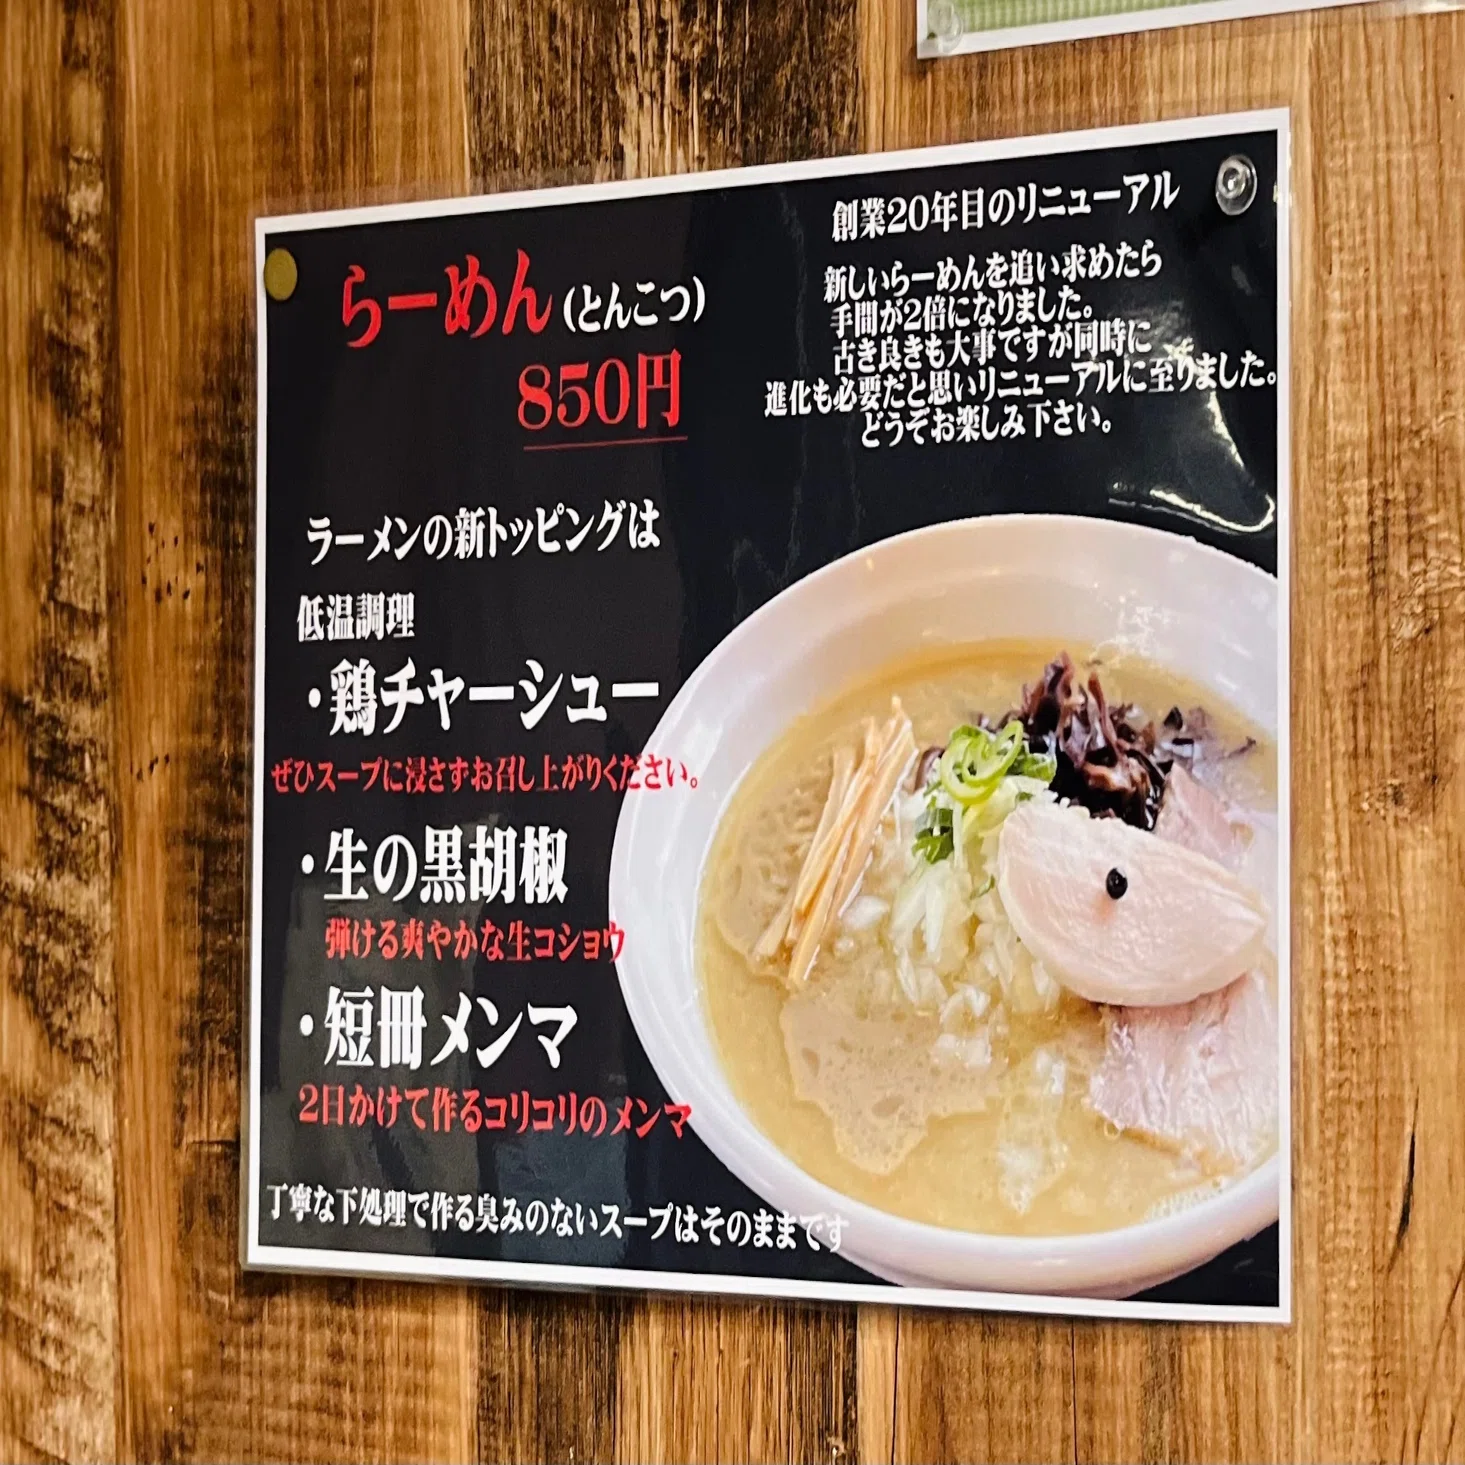 らーめん(とんこつ)
850円
創業20年目のリニューアル
新しいらーめんを追い求めたら
手間が2倍になりました。
古き良きも大事ですが同時に
進化も必要だと思いリニューアルに至りました。
どうぞお楽しみ下さい。
ラーメンの新トッピングは
低温調理
・鶏チャーシュー
ぜひスープに浸さずお召し上がりください。
・生の黒胡椒
弾ける爽やかな生コショウ
・短冊メンマ
2日かけて作るコリコリのメンマ
丁寧な下処理で作る臭みのないスープはそのままです